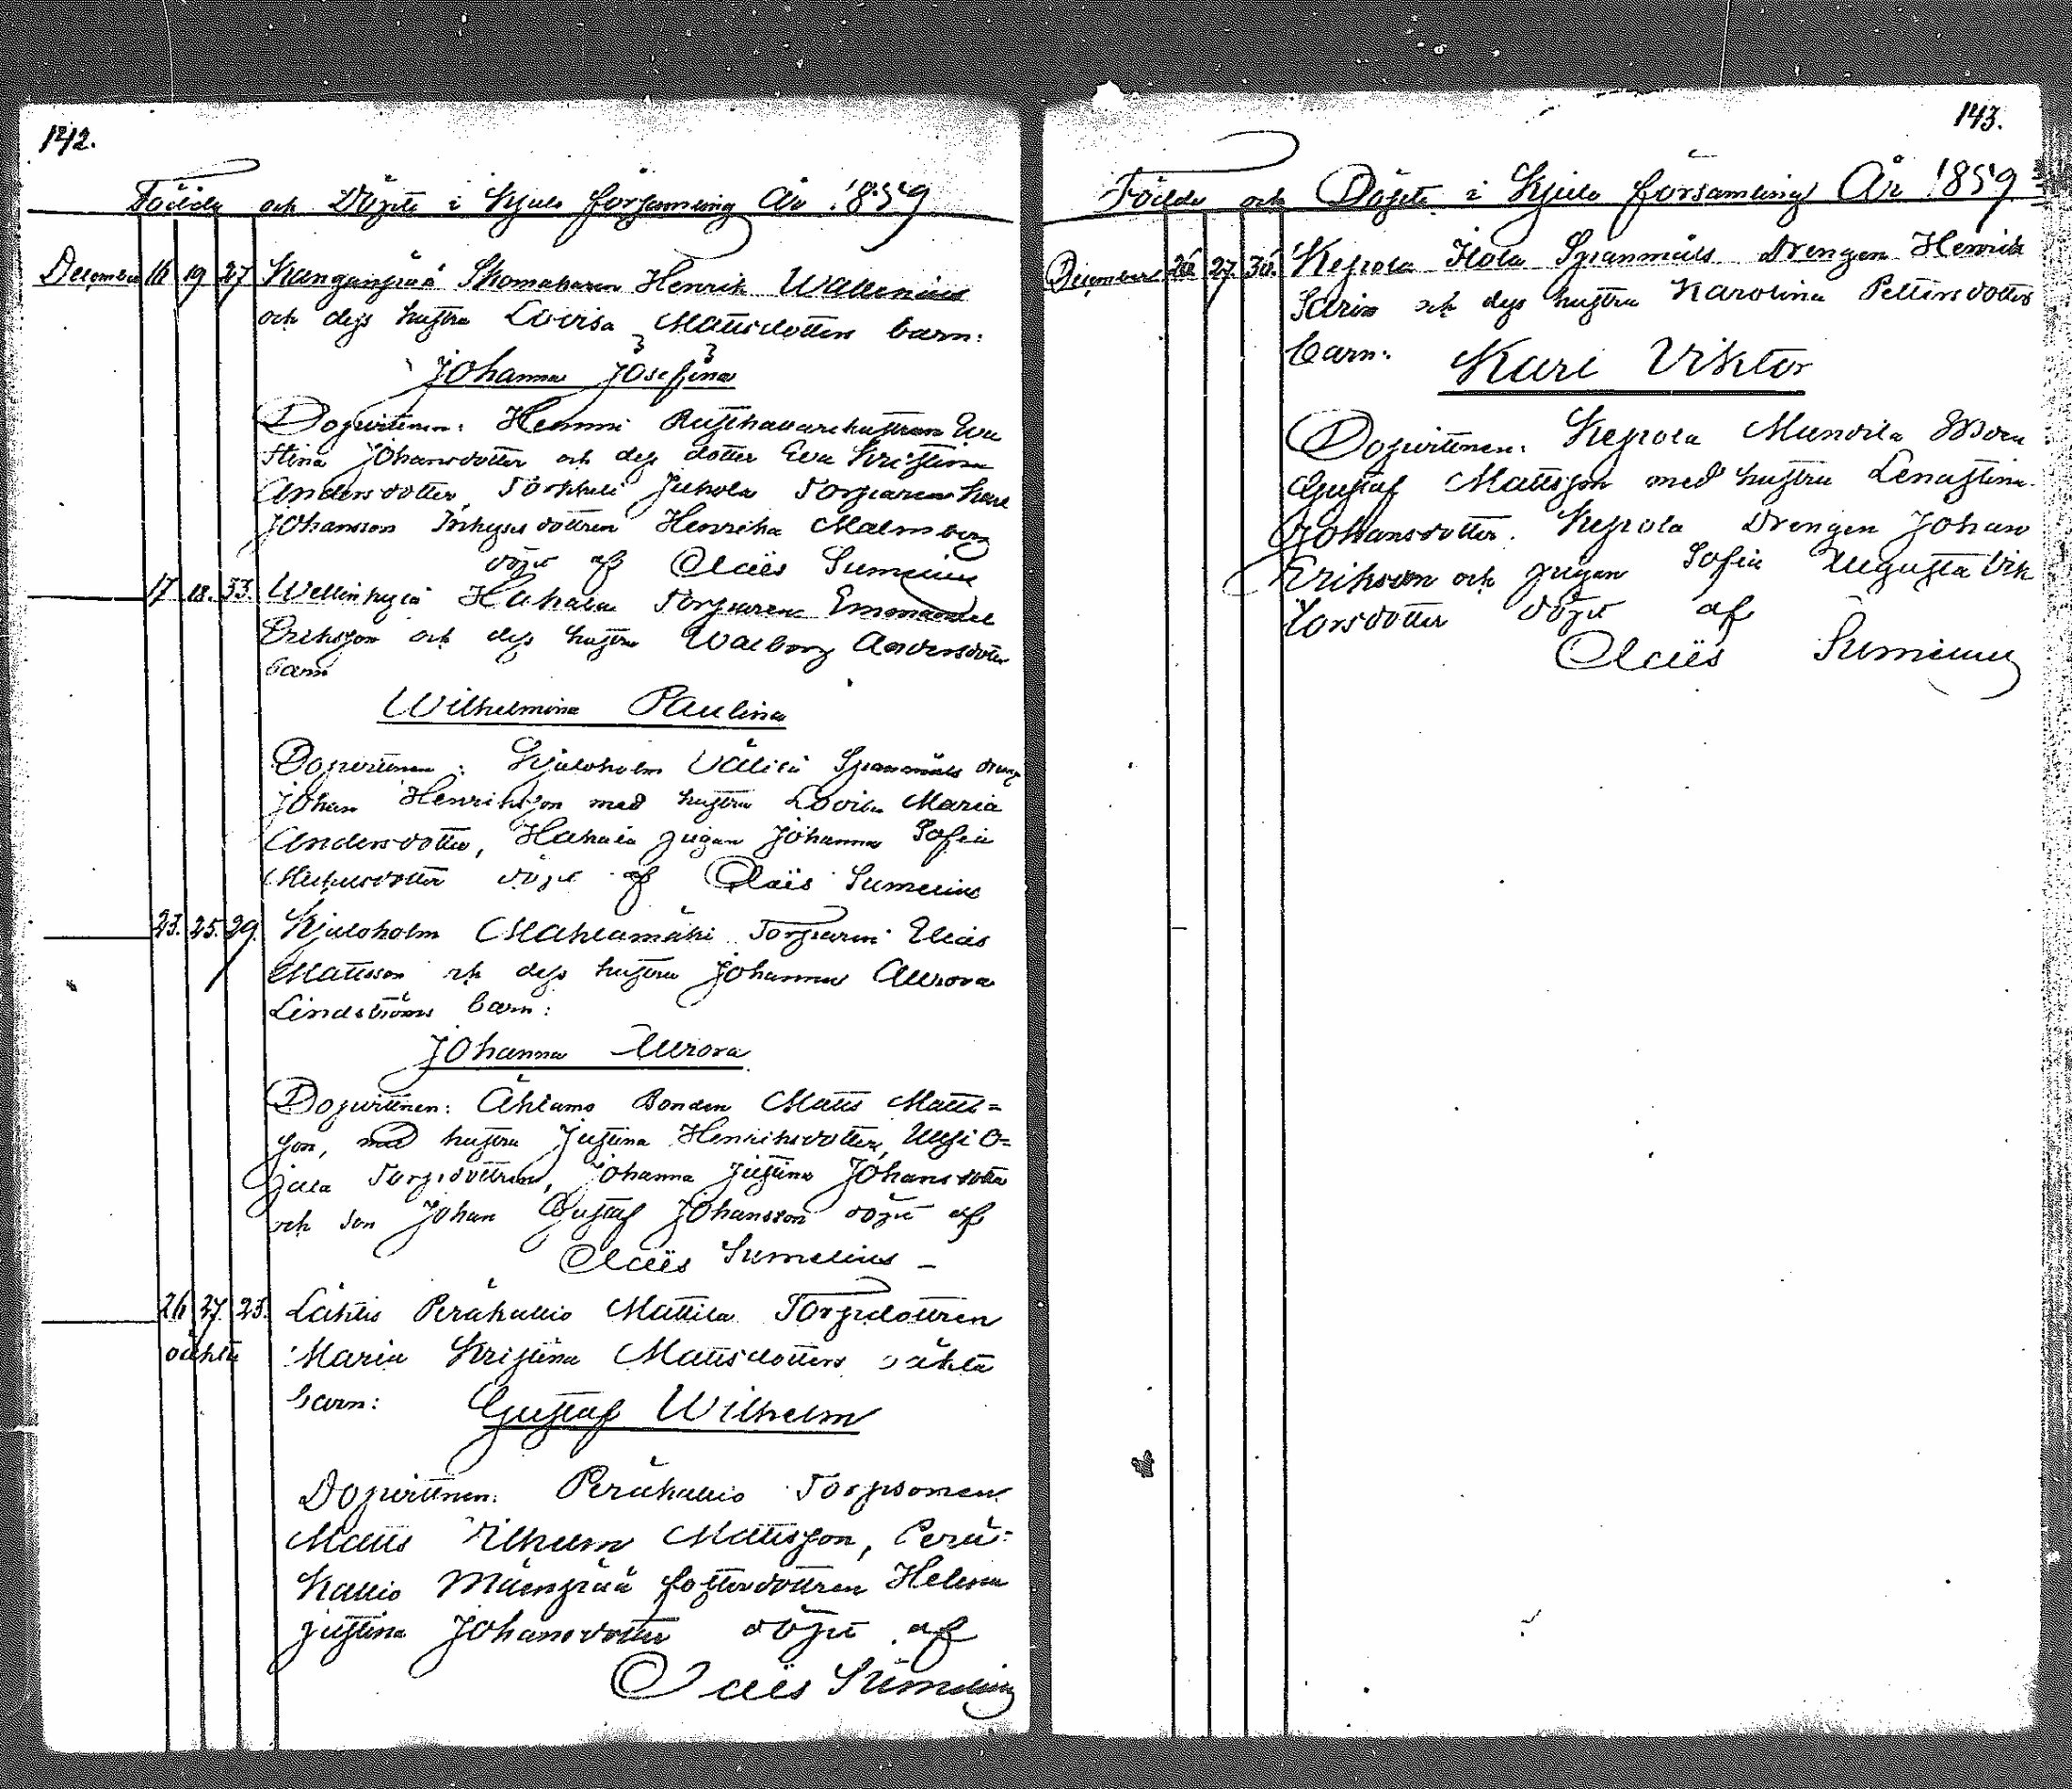 142.
Födde och Döpte i Kjulo församling År 1859
December 16 19 27 Kanganpää Skomakaren Henrik Wallenius
och dess hustru Lovisa Mattsdotters barn:
Johanna Josefina
Dopvittnen: Hemmi Rusthavarehustrun Eva
Stina Johansdotter och dess dotter Eva Kristina
Andersdotter, Juhola Torparen Karl
Johansson Inhyses dottren Henrika Malmberg
döpt af Claës Sumelius
17 18. 33. Hakala Torparen Emmanuel
Eriksson och dess hustru Walborg Andersdotters
barn
Wilhelmina Paulina
Dopvittnen: Kjuloholm Välilä Spanmåls dreng
Johan Henriksson med hustru Lovisa Maria
Andersdotter, Hakala pigan Johanna Sofia
Mickelsdotter döpt af Claës Sumelius
23. 25. 29. Kjuloholm Mahlamäki Torparen Elias
Mattsson och dess hustru Johanna Aurora
Lindströms barn:
Johanna Aurora
Dopvittnen: Ählamo Bonden Matts Matts=
son, med hustru Justina Henriksdotter, Uusi O=
jala Torpdottren, Johanna Justina Johansdotter
och son Johan Gustaf Johansson döpt af
Claës Sumelius
26 27. 23. Lähtis Peräkallio Mattila Torpdottren
oäkta Maria Kristina Mattsdotters oäkta
barn: Gustaf Wilhelm
Dopvittnen: Peräkallio Torpsonen
Matts Vilhelm Mattsson, Perä=
kallio Mäenpää fosterdottren Helena
Justina Johansdotter döpt af
Claës Sumelius
143.
Födde och Döpte i Kjulo församling År 1859
December 26. 27. 30. Kepola Ilola Spanmåls Drengen Henrik
och dess hustru Karolina Pettersdotters
barn. Karl Viktor
Dopvittnen: Kepola Mundila
Gustaf Mattsson med hustru Lenastina
Johansdotter. Kepola Drengen Johan
Eriksson och pigan Sofia Augusta Vik
torsdotter döpt af
Claës Sumelius